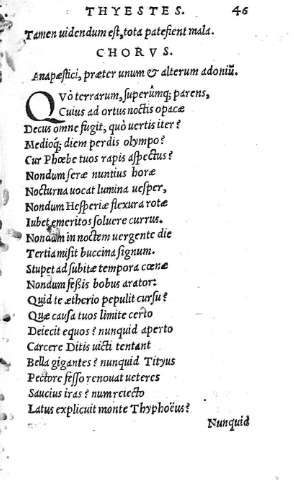 THYESTES. 46
Tamen uidendum est, tota patefient mala.
CHORVS.
Anapæstici, præter unum & alterum adoniũ.
QVò terrarum, superûmq; parens,
Cuius ad ortus noctis opacæ
Decus omne fugit, quò uertis iter?
Medioq; diem perdis olympo?
Cur Phœbe tuos rapis aspectus?
Nondum seræ nuntius horæ
Nocturna uocat lumina uesper,
Nondum Hesperiæ flexura rotæ
Iubet emeritos soluere currus.
Nondum in noctem uergente die
Tertia misit buccina signum.
Stupet ad subitæ tempora cœnæ
Nondum fessis bobus arator:
Quid te ætherio pepulit cursu?
Quæ causa tuos limite certo
Deiecit equos? nunquid aperto
Carcere Ditis uicti tentant
Bella gigantes? nunquid Tityus
Pectore fesso renouat ueteres
Saucius iras? num reiecto
Latus explicuit monte Thyphoëus?
Nunquid